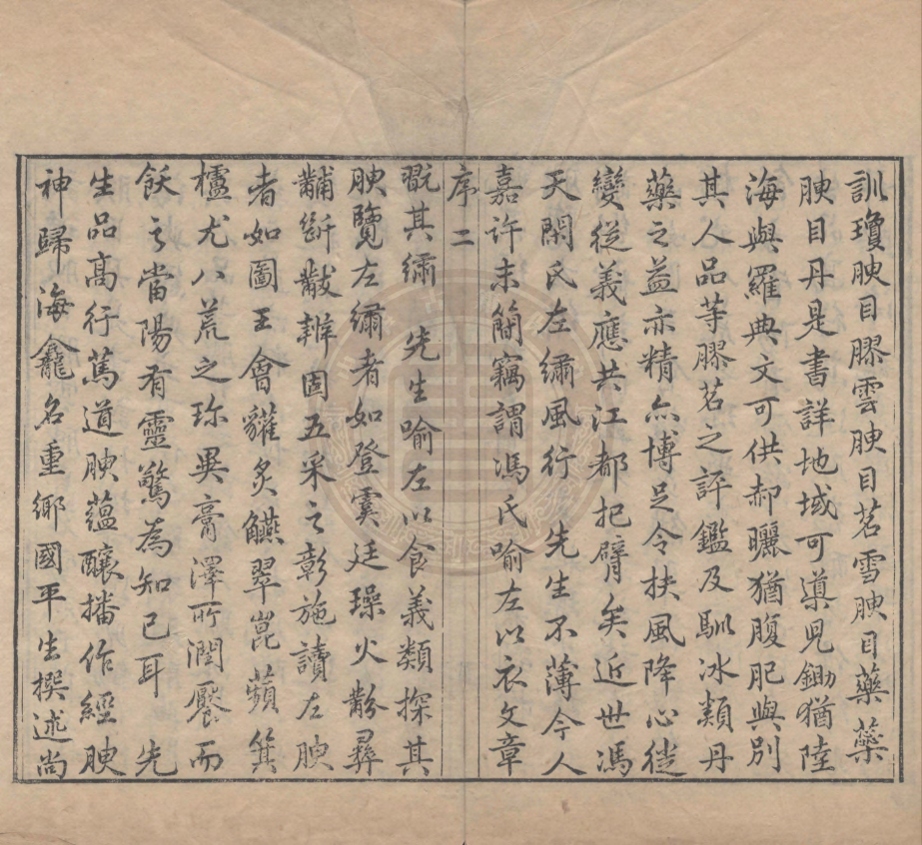 訓瓊腴目膠雲腴目茗雪腴目藥藥
腴目丹是書詳地域可導兕鋤猶陸
海與羅典文可供郝曬猶腹肥與別
其人品等膠茗之評鑑及馴冰類丹
藥之益亦精亦博足令扶風降心徒
變從義應共江都把臂矣近世馮
天閑氏左繡風行 先生不薄今人
嘉許未簡竊謂馮氏喻左以衣文章
序二
翫其繡 先生喻左以食義類探其
腴覽左繡者如登虞廷璪火黺彞
黼斷黻辨固五采之彰施讀左腴
者如圖王會貛炙鱺翠崑蘋箕
櫨尤八荒之珍異膏澤所潤饜而
飫之當陽有靈驚為知己耳 先
生品高行篤道腴蘊釀播作經腴
神歸海龕名重鄉國平生撰述尚